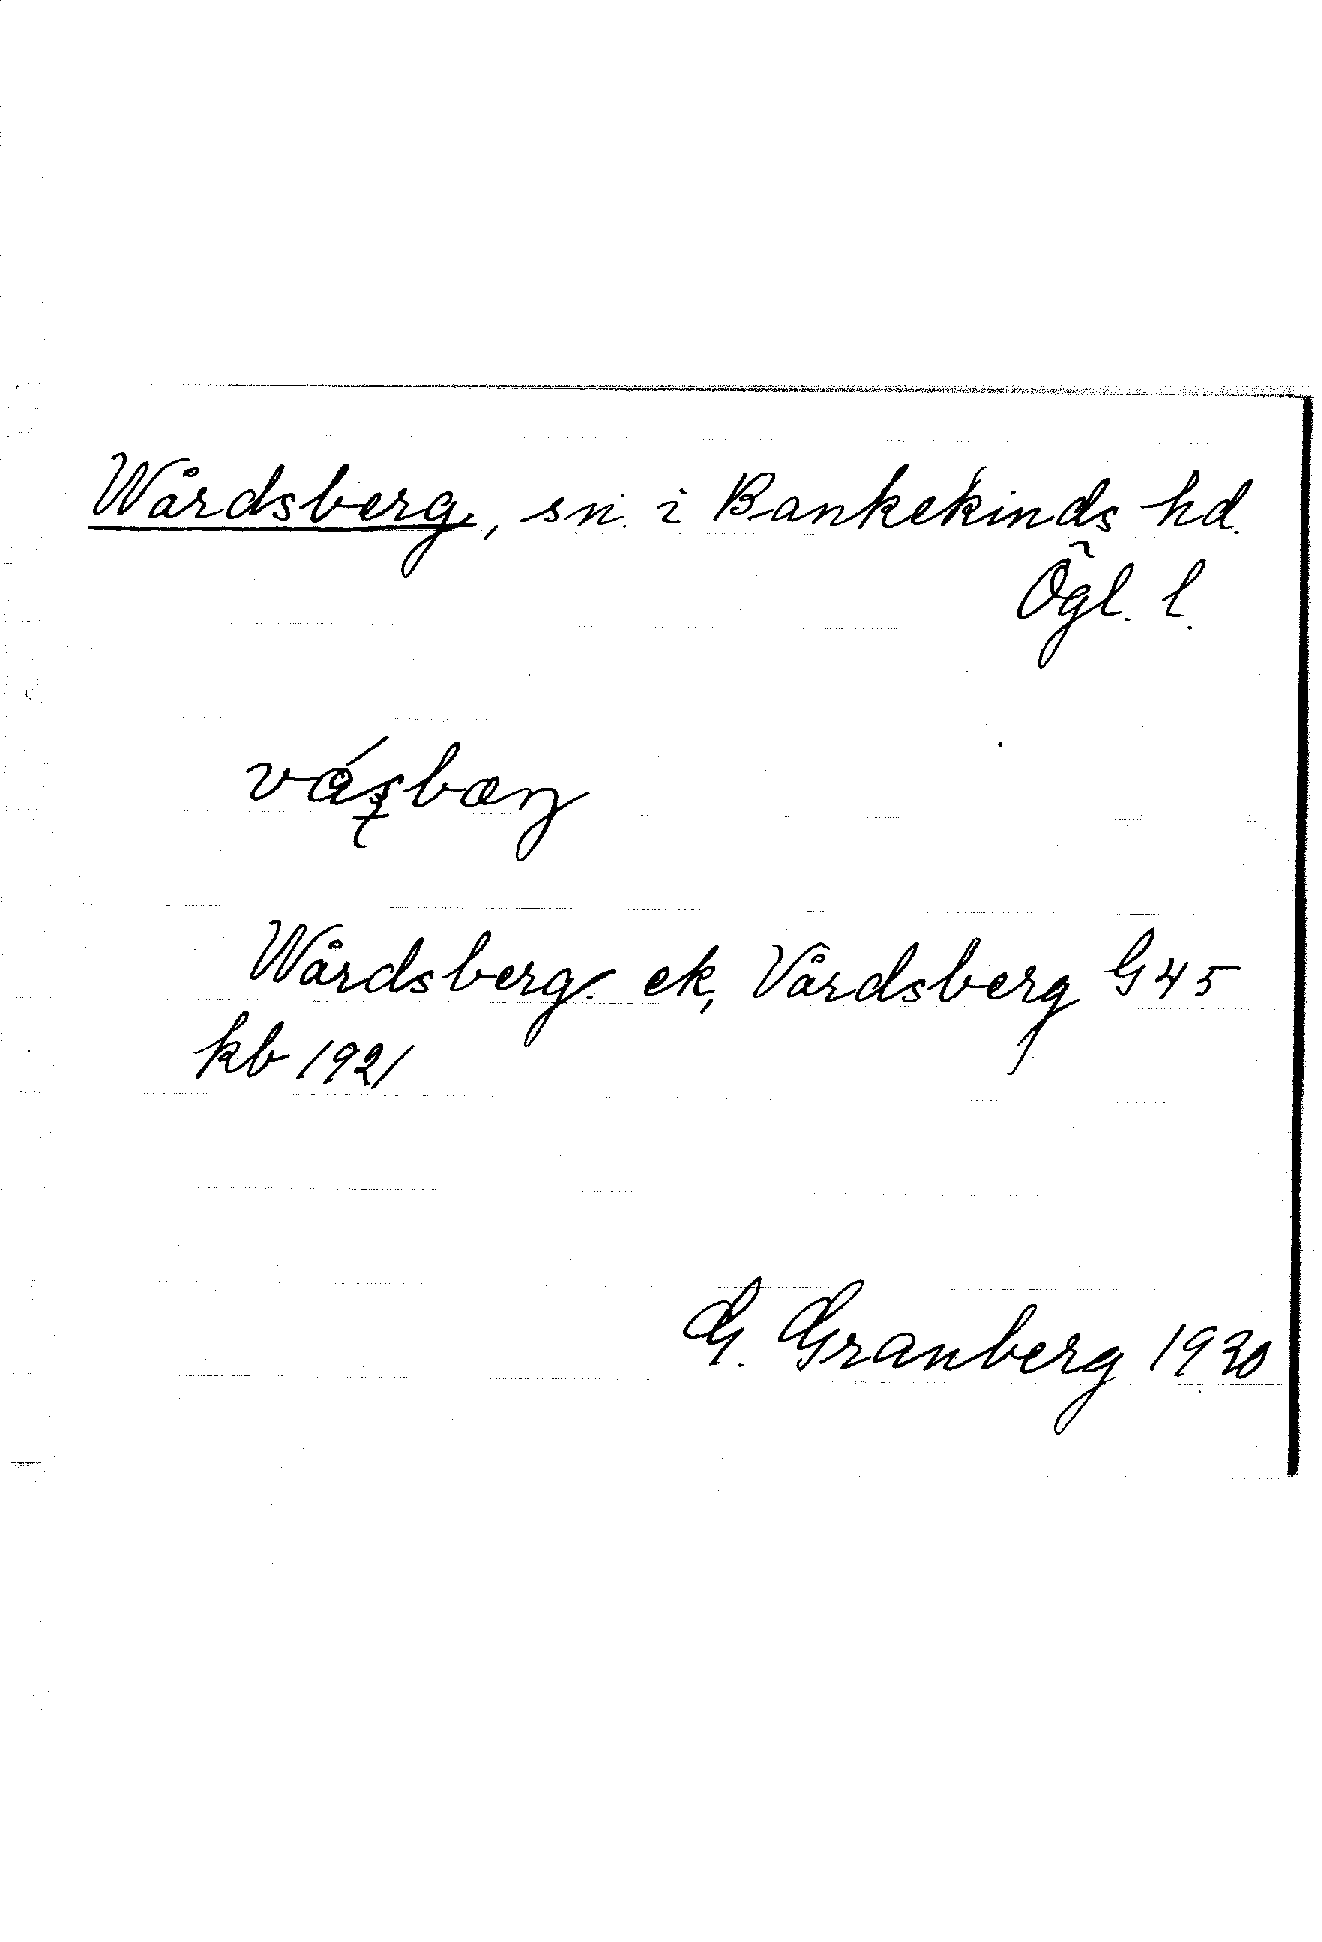 Wårdsberg, sn. i Bankekinds hd.
Ögl. l.
Wårdsberg. ek, Vårdsberg G45
kb 1921
G. Granberg 1930